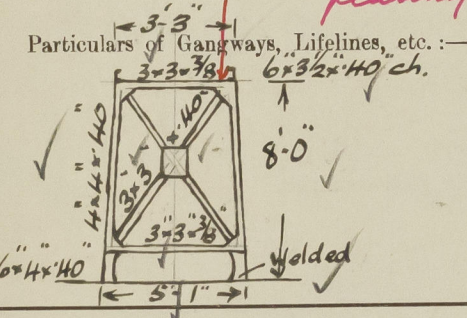 3'-3"
Particulars of Gangways, Lifelines, etc. :—
3×3×3/8" 6"×3½"×·40" ch.
4"×4"×·40"
3"×3"×·40"
8'-0"
3"×3"×3/8"
6"×4"×·40"
welded
5'-1"